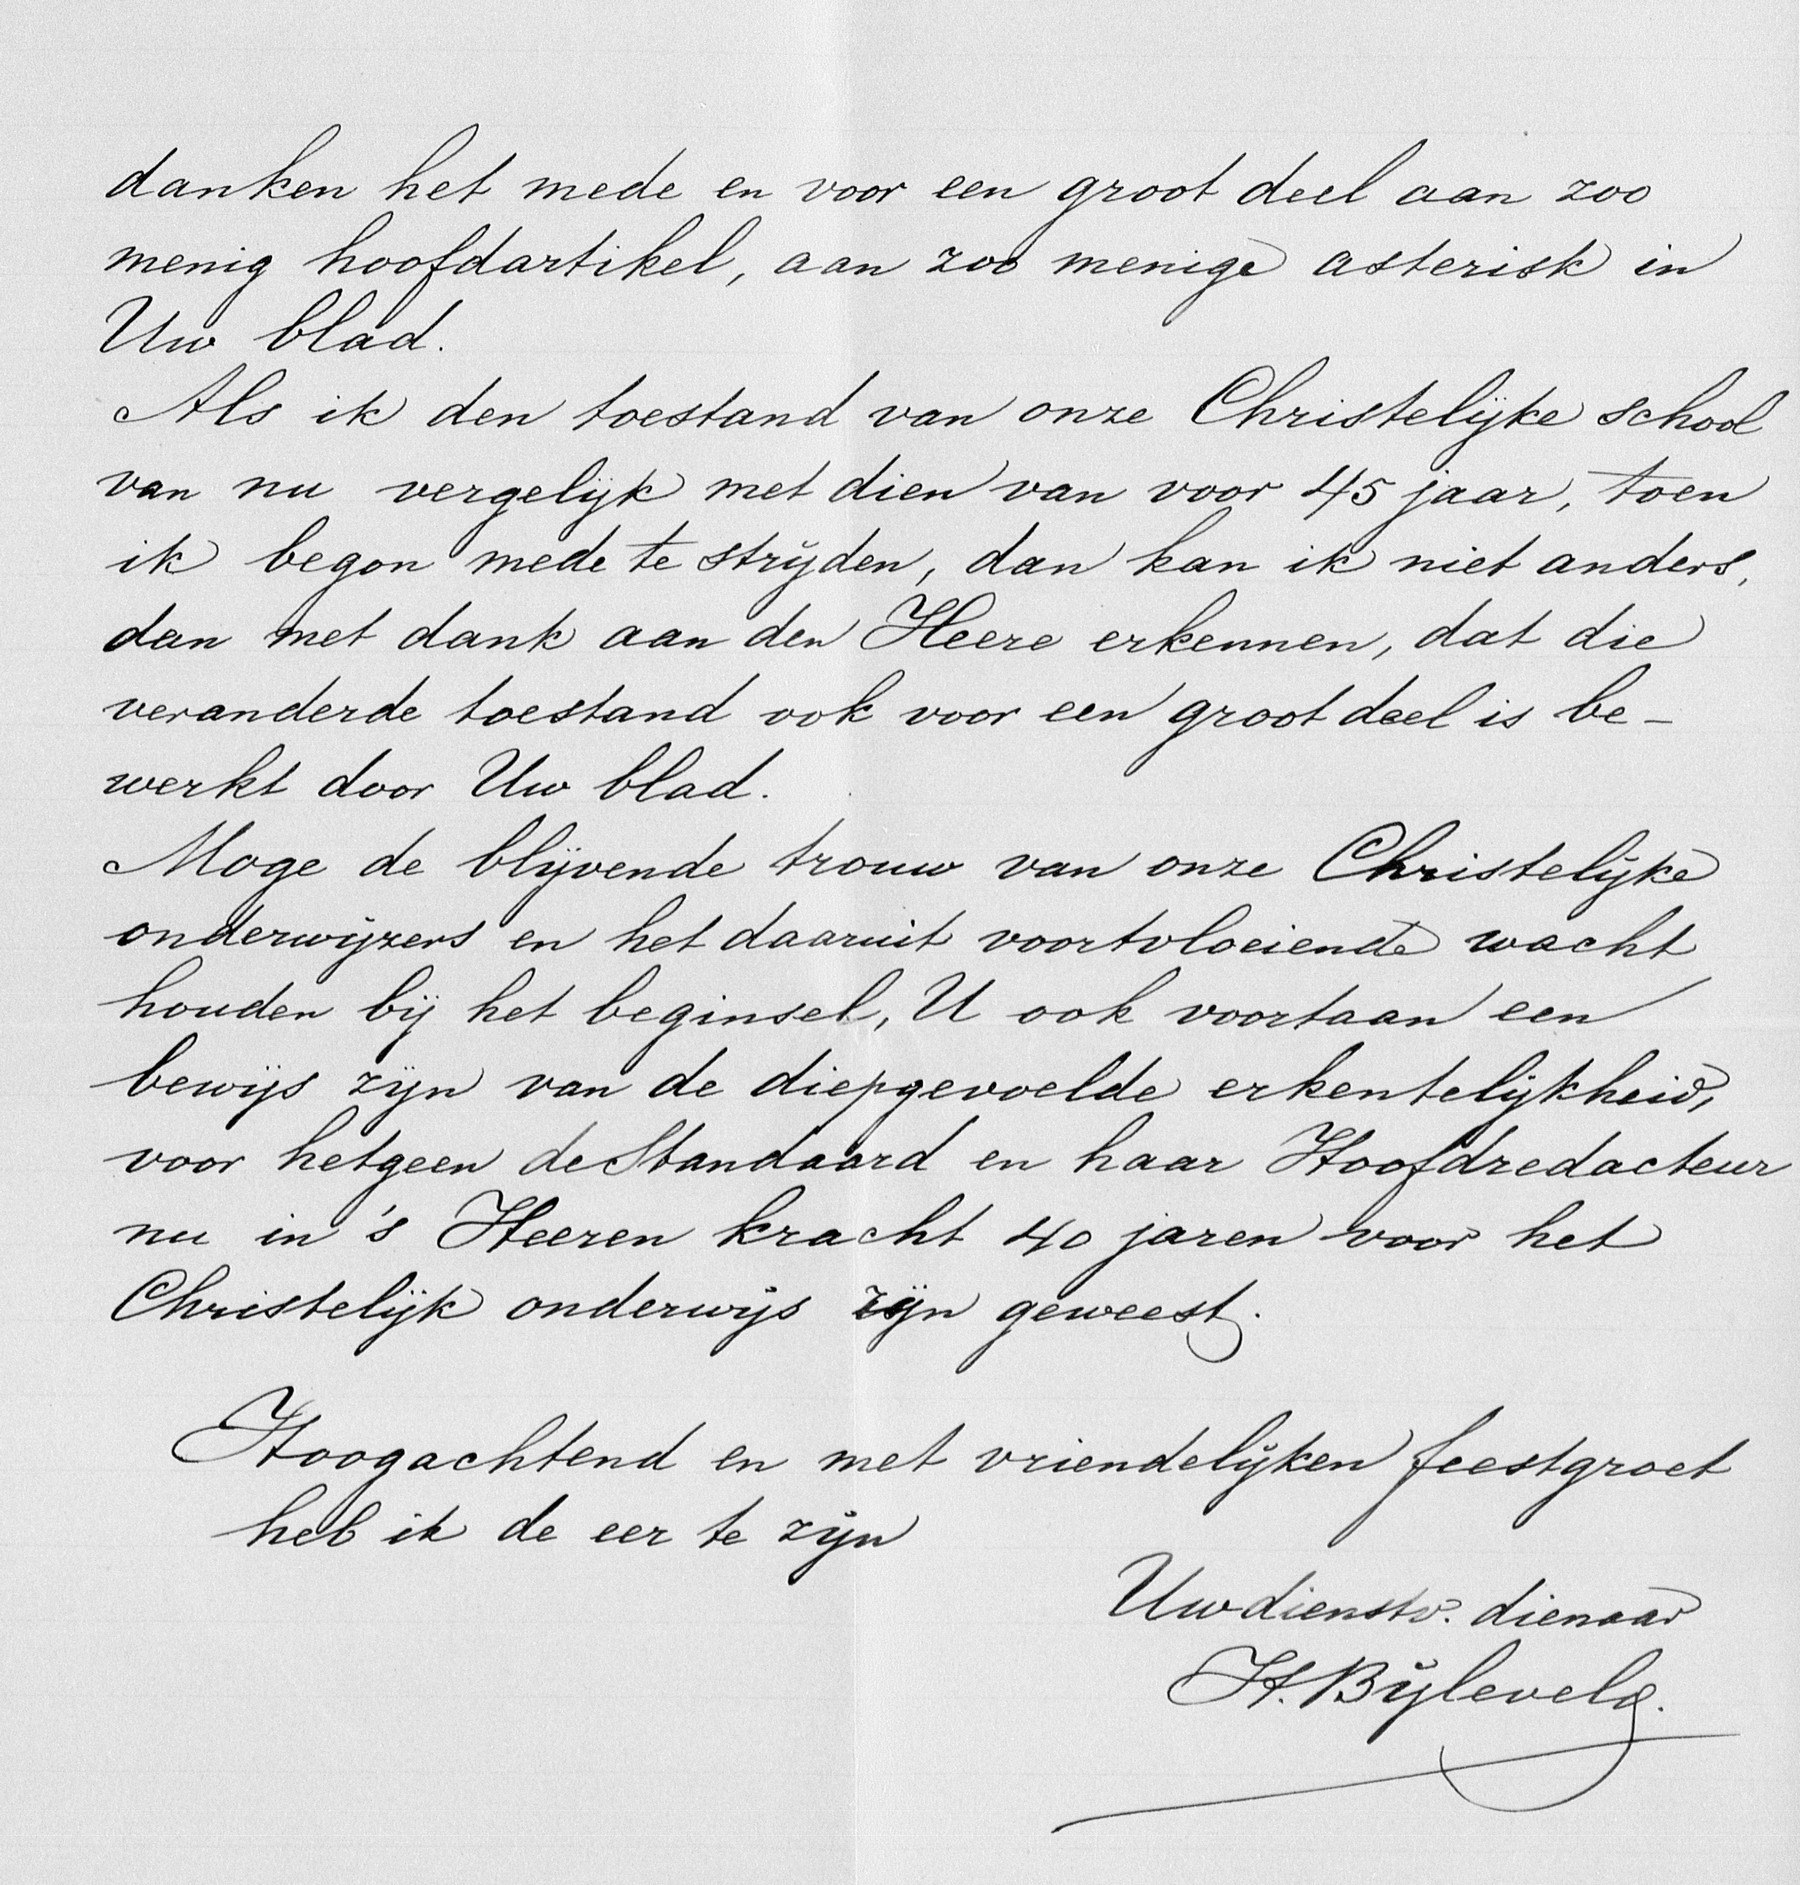 danken het mede en voor een groot deel aan zoo
menig hoofdartikel, aan zoo menige asterisk in
Uw blad.
Als ik den toestand van onze Christelijke school
van nu vergelijk met dien van voor 45 jaar, toen
ik begon mede te strijden, dan kan ik niet anders,
dan met dank aan den Heere erkennen, dat die
veranderde toestand ook voor een groot deel is be-
werkt door Uw blad.
Moge de blijvende trouw van onze Christelijke
onderwijzers en het daaruit voortvloeiende wacht
houden bij het beginsel, U ook voortaan een
bewijs zijn van de diepgevoelde erkentelijkheid,
voor hetgeen de Standaard en haar Hoofdredacteur
nu in 's Heeren kracht 40 jaren voor het
Christelijk onderwijs zijn geweest.
Hoogachtend en met vriendelijken feestgroet
heb ik de eer te zijn
Uw dienstv. dienaar
H. Bijleveld.